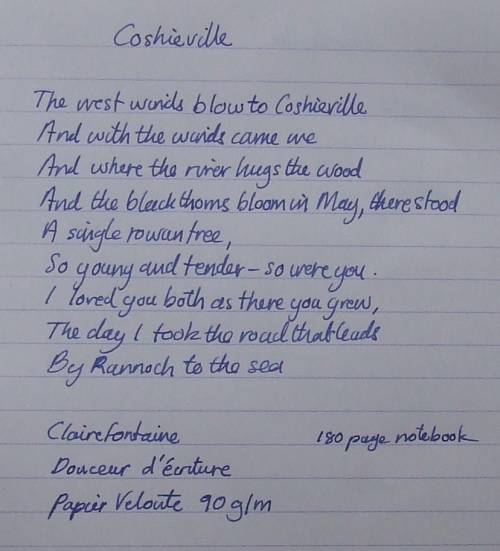 Coshieville
The west winds blow to Coshieville
And with the winds came we
And where the river hugs the wood
And the blackthorns bloom in May, there stood
A single rowan tree,
So young and tender – so were you.
I loved you both as there you grew,
The day I took the road that leads
By Rannoch to the sea
Clairefontaine 180 page notebook
Douceur d'écriture
Papier Veloute 90g/m